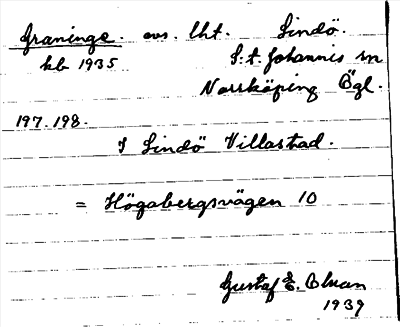 Graninge. avs. lht. Lindö.
kb 1935 S:t Johannis sn
Norrköping Ögl.
197. 198.
I Lindö Villastad.
= Högabergsvägen 10
Gustaf E.
1939